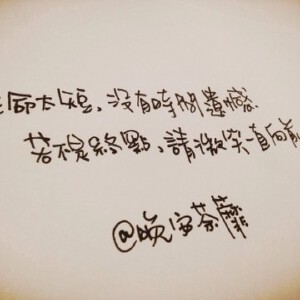 生命太短，沒有時間遺憾
若不是終點，請微笑一直向前
@晚安茶蘼